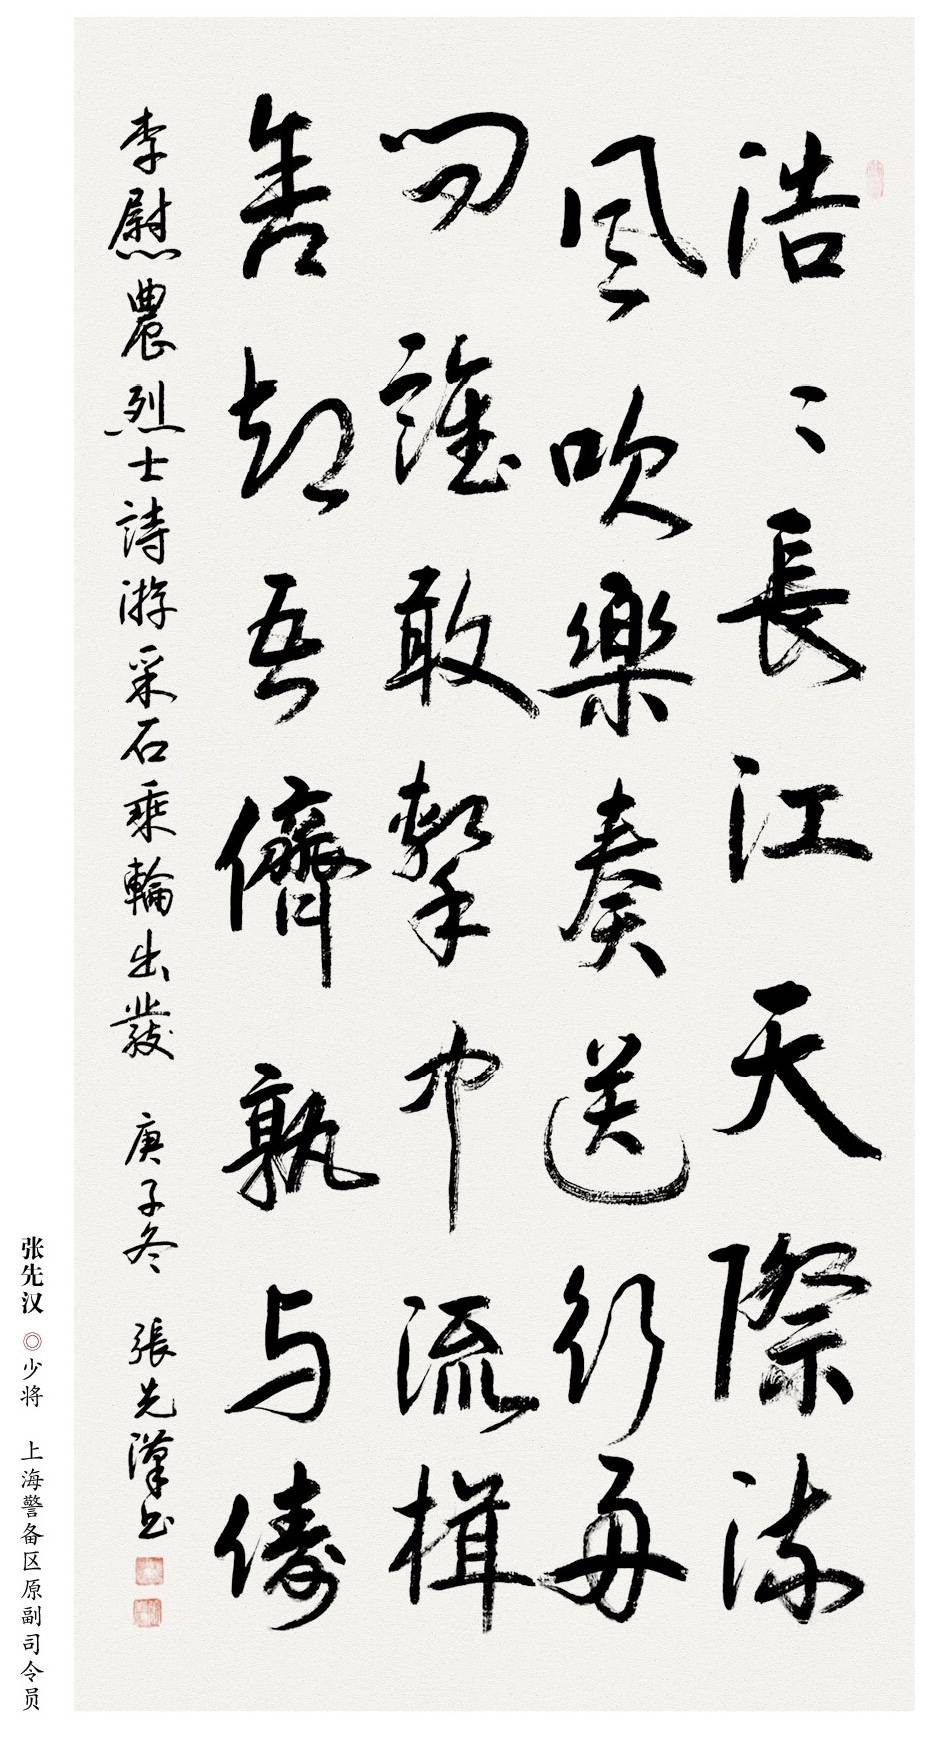 浩〻長江天際流
風吹樂奏送行舟
問誰敢擊中流楫
舍却吾儕孰与儔
李慰農烈士詩游采石乘輪出發 庚子冬 張先漢书
张先汉 ◎ 少将 上海警备区原副司令员